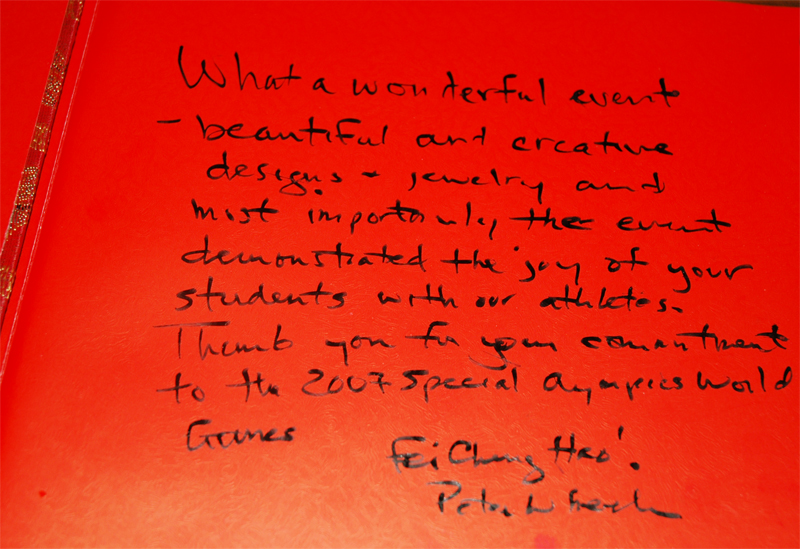 What a wonderful event
- beautiful and creative
designs + jewelry and
most importantly the event
demonstrated the joy of your
students with our athletes.
Thank you for your commitment
to the 2007 Special Olympics World
Games
Fei Chang Hao!
Peter